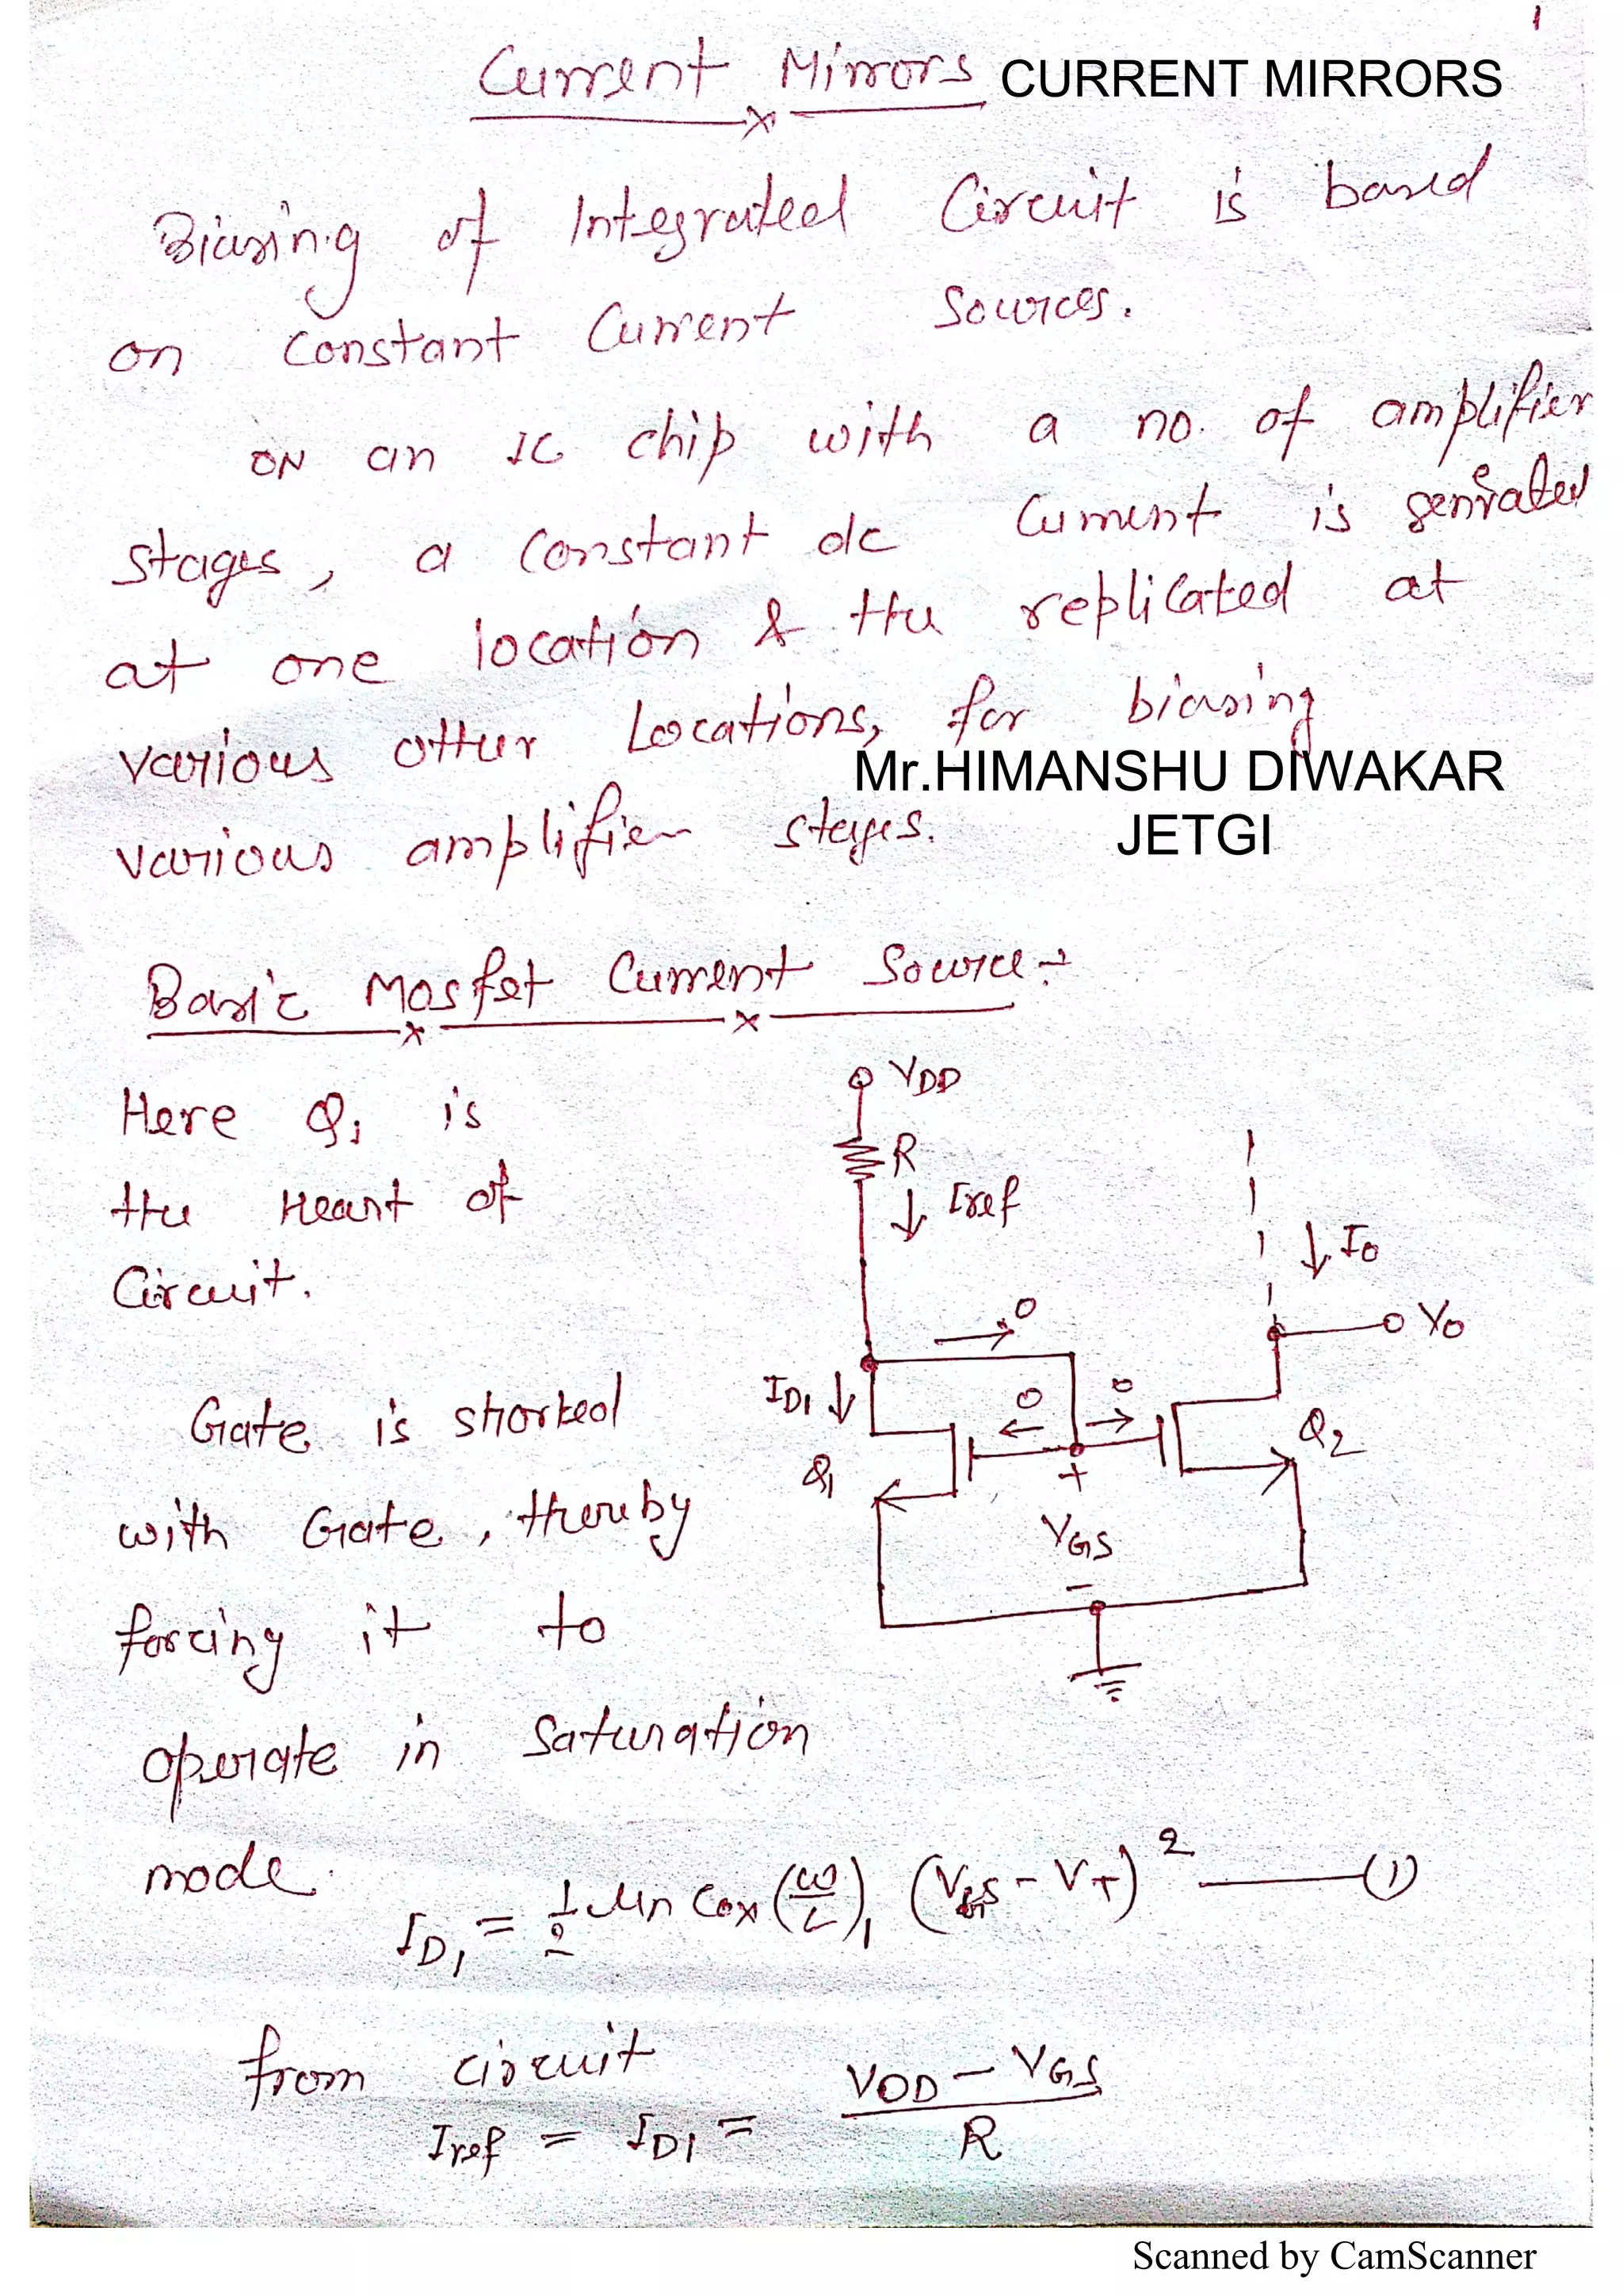 1
Current Mirrors CURRENT MIRRORS
Biasing of Integrated Circuit is based
on Constant Current Sources.
ON an IC chip with a no. of amplifier
stages, a constant dc Current is genrated
at one location & the replicated at
various other Locations, for biasing
Mr.HIMANSHU DIWAKAR
various amplifier stages.
JETGI
Basic Mosfet Current Source :-
Here Q1 is
the Heart of
Circuit.
Gate is shorted
with Gate, thereby
forcing it to
operate in Saturation
mode.
VDD
R
Iref
Io
0
Vo
ID1
0 0
Q1
Q2
+
VGS
-
ID1 = 1/2 μn Cox (W/L)1 (VGS - VT)^2 —— (1)
from circuit
Iref = ID1 = (VDD - VGS)/R
Scanned by CamScanner